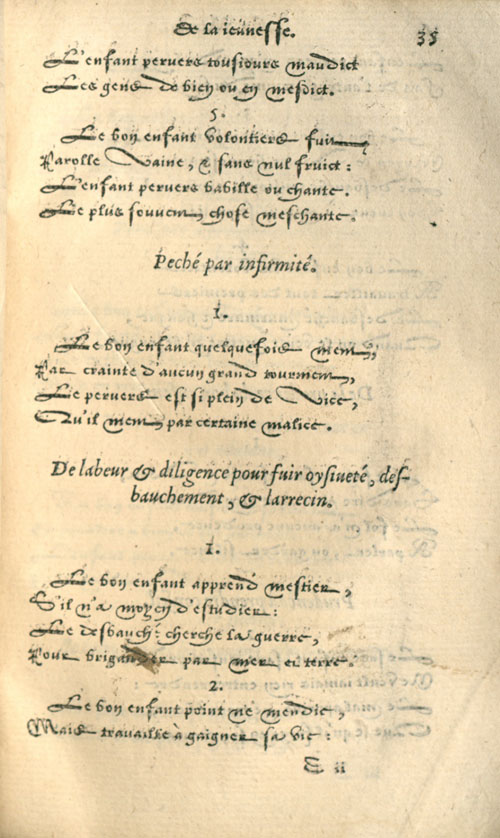 De la ieunesse. 35
L'enfant pervers tousiours maudict
Les gens de bien ou en mesdict.
5.
Le bon enfant volontiers fuit
Parolle vaine, & sans nul fruict:
L'enfant pervers babille ou chante.
Le plus souvent chose meschante.
Peché par infirmité.
1.
Le bon enfant quelquefois ment,
Par crainte d'aucun grand tourment,
Le pervers est si plein de vice,
Qu'il ment par certaine malice.
De labeur & diligence pour fuir oysiveté, des-
bauchement, & larrecin.
1.
Le bon enfant apprend mestier,
S'il n'a moyen d'estudier:
Le desbauché cherche la guerre,
Pour brigander par mer et terre.
2.
Le bon enfant point ne mendie,
Mais travaille à gaigner sa vie:
E ii